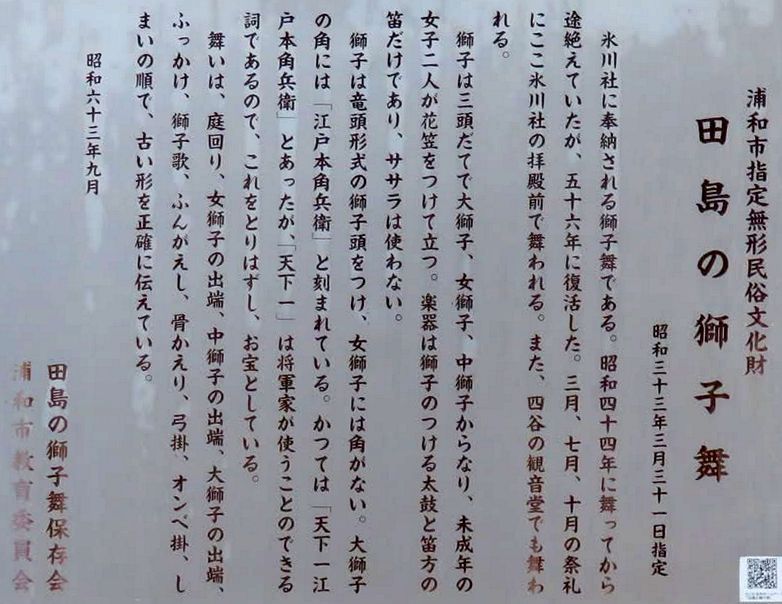 浦和市指定無形民俗文化財
田島の獅子舞
昭和三十三年三月三十一日指定
氷川社に奉納される獅子舞である。昭和四十四年に舞ってから
途絶えていたが、五十六年に復活した。三月、七月、十月の祭礼
にここ氷川社の拝殿前で舞われる。また、四谷の観音堂でも舞わ
れる。
獅子は三頭だてで大獅子、女獅子、中獅子からなり、未成年の
女子二人が花笠をつけて立つ。楽器は獅子のつける太鼓と笛方の
笛だけであり、ササラは使わない。
獅子は竜頭形式の獅子頭をつけ、女獅子には角がない。大獅子
の角には「江戸本角兵衛」と刻まれている。かつては「天下一江
戸本角兵衛」とあったが、「天下一」は将軍家が使うことのできる
詞であるので、これをとりはずし、お宝としている。
舞いは、庭回り、女獅子の出端、中獅子の出端、大獅子の出端、
ふっかけ、獅子歌、ふんがえし、骨かえり、弓掛、オンベ掛、し
まいの順で、古い形を正確に伝えている。
昭和六十三年九月
田島の獅子舞保存会
浦和市教育委員会